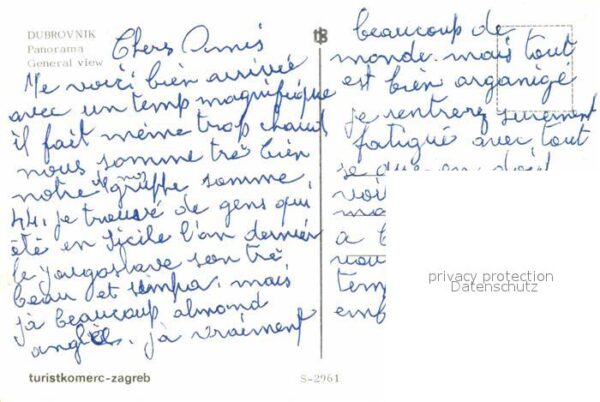 DUBROVNIK
Panorama
General view
Chers Amis
Me voici bien arrivée
avec un temp magnifique
il fait même trop chaud
nous somme trè bien
notre gruppe somme
44. je trouvé de gens qui
été en Sicile l'an dernier
le yougoslave son trè
beau et simpa. mais
jà beaucoup almond
anglès. jà vraiment
turistkomerc-zagreb
S-2961
beaucoup de
monde. mais tout
est bien organigé
je rentrerez surement
fatigué avec tout
se que on doit
voi
ma
a b
vou
temp
emb
privacy protection
Datenschutz